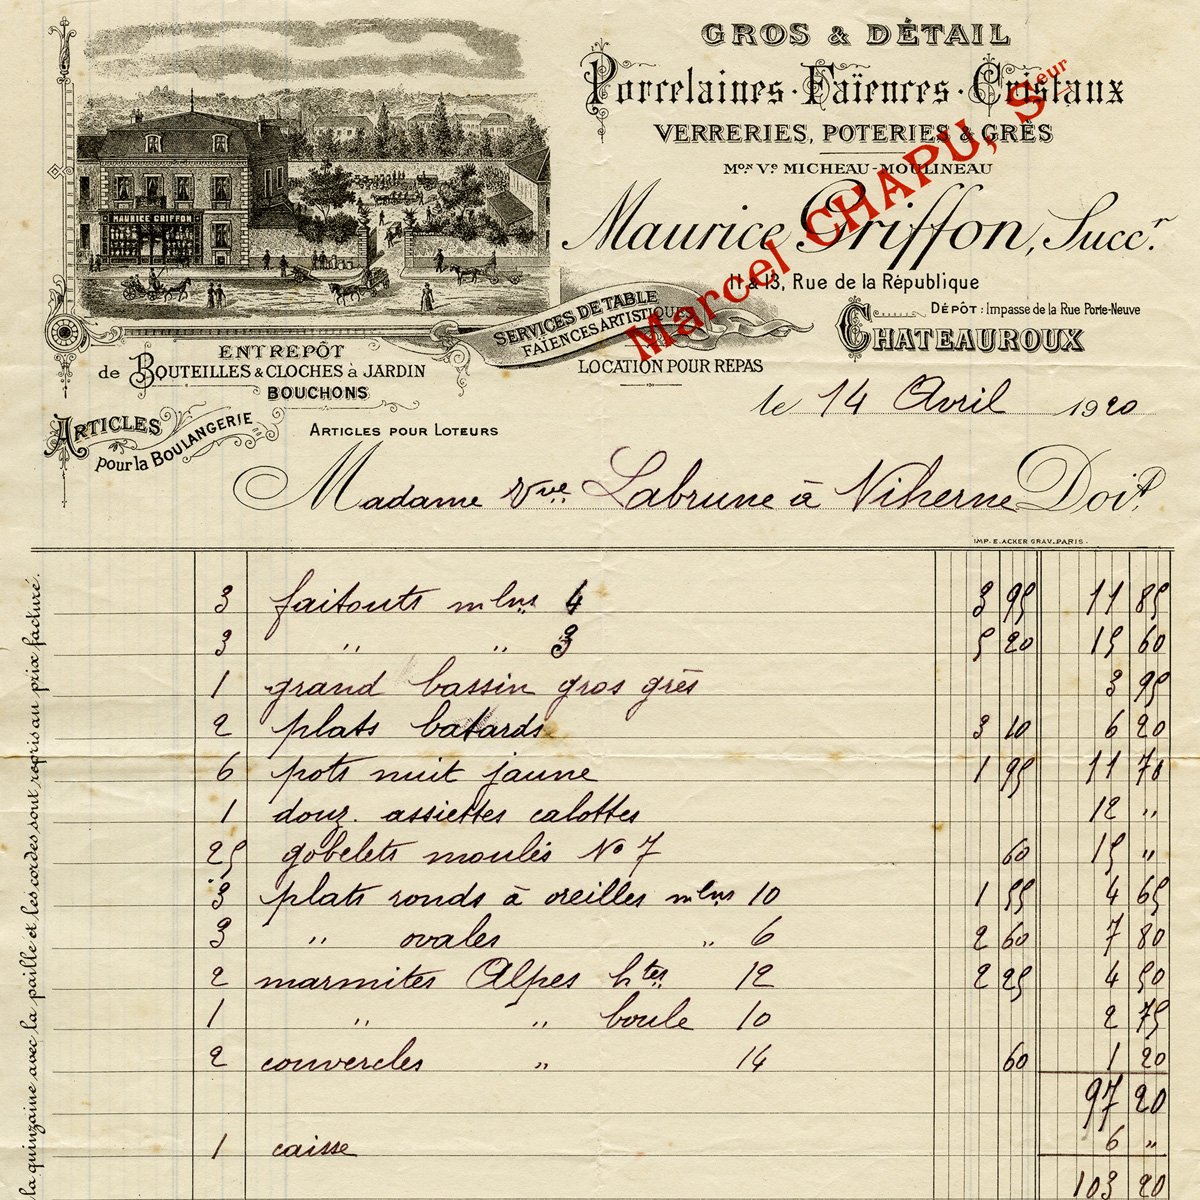 GROS & DÉTAIL
Porcelaines · Faïences · Cristaux
VERRERIES, POTERIES & GRÈS
Mon Ve MICHEAU-MOULINEAU
Maurice Griffon, Succr.
Marcel CHAPU, Seur
MAURICE GRIFFON
11 & 13, Rue de la République
DÉPÔT : Impasse de la Rue Porte-Neuve
CHATEAUROUX
SERVICES DE TABLE
FAÏENCES ARTISTIQUES
LOCATION POUR REPAS
ENTREPÔT
de BOUTEILLES & CLOCHES à JARDIN
BOUCHONS
ARTICLES
pour la BOULANGERIE
ARTICLES POUR LOTEURS
le 14 Avril 1920
Madame Vve Labrune à Niherne Doit
IMP. E. ACKER GRAV. PARIS.
3 faitouts mlns 4 3 95 11 85
3 " " 3 5 20 15 60
1 grand bassin gros grès 3 95
2 plats batards 3 10 6 20
6 pots nuit jaune 1 95 11 70
1 douz. assiettes calottes 12 "
25 gobelets moulés No 7 60 15 "
3 plats ronds à oreilles mlns 10 1 55 4 65
3 " ovales " 6 2 60 7 80
2 marmites Alpes htes 12 2 25 4 50
1 " " boule 10 2 75
2 couvercles " 14 60 1 20
97 20
1 caisse 6 "
103 20
la quinzaine avec la paille et les cordes sont repris au prix facturé.